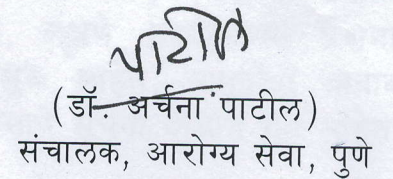 पाटील
(डॉ. अर्चना पाटील)
संचालक, आरोग्य सेवा, पुणे